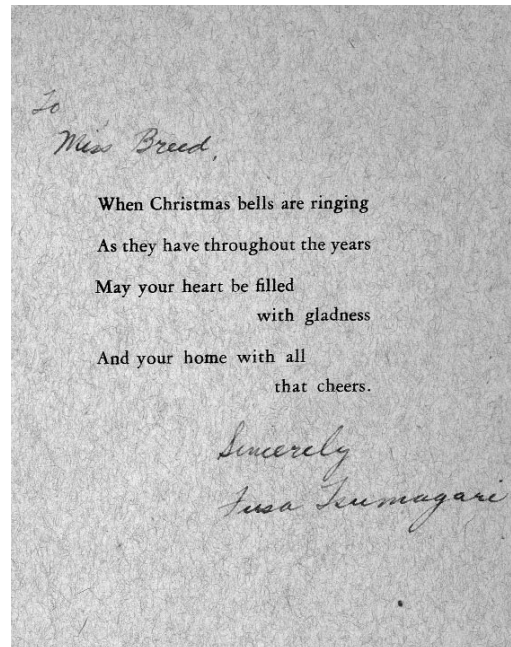 To
Miss Breed,
When Christmas bells are ringing
As they have throughout the years
May your heart be filled
with gladness
And your home with all
that cheers.
Sincerely
Fusa Tsumagari